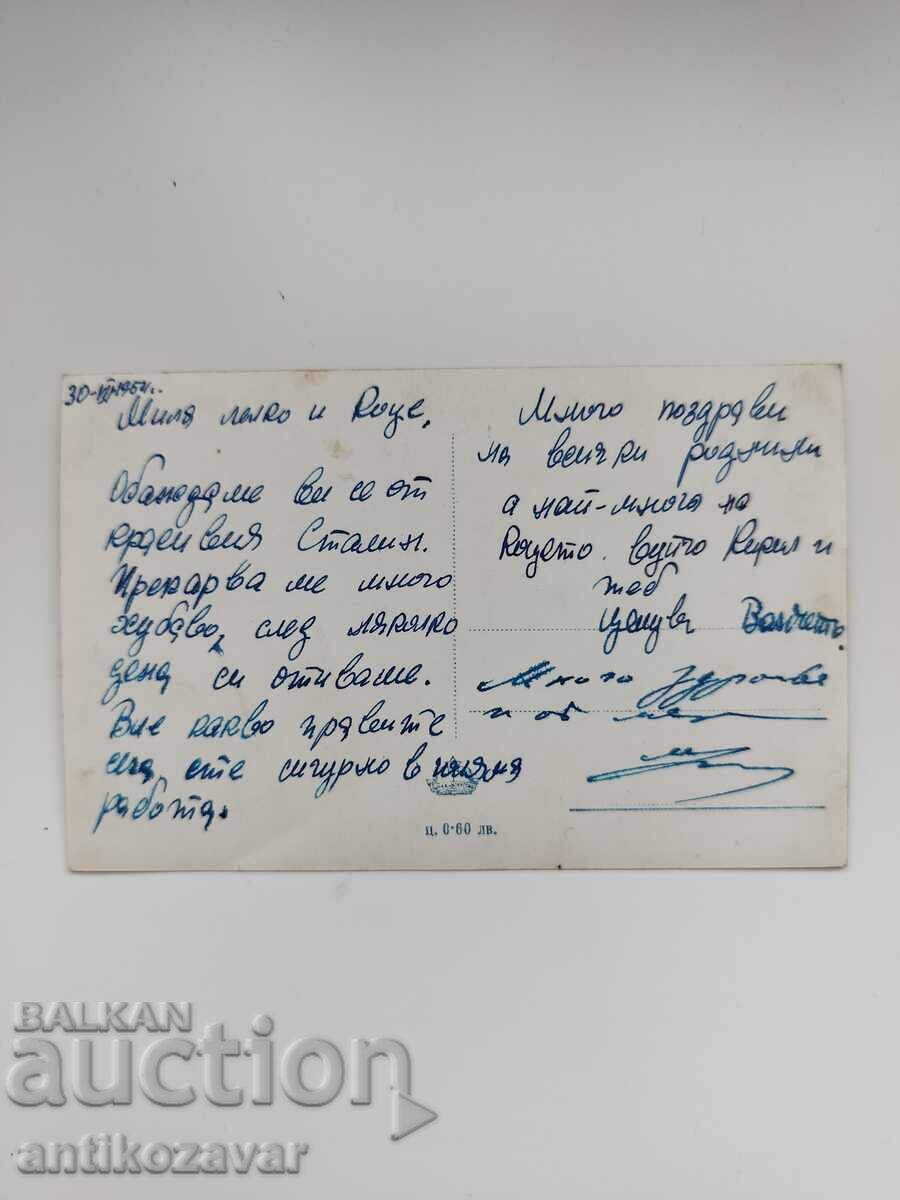 Мила лелко и Коце,
Обаждаме ви се от
красивия Сталин.
Прекарва ме много
хубаво, след няколко
дена си отиваме.
Вие какво правите
сега, сте сигурно в
работа.
Много поздрави
на всички роднини
а най-много на
Коцето. вуйчо Кирил и
теб
целува
Много здраве
и от мен
ц. 0·60 лв.
BALKAN
auction
antikozavar